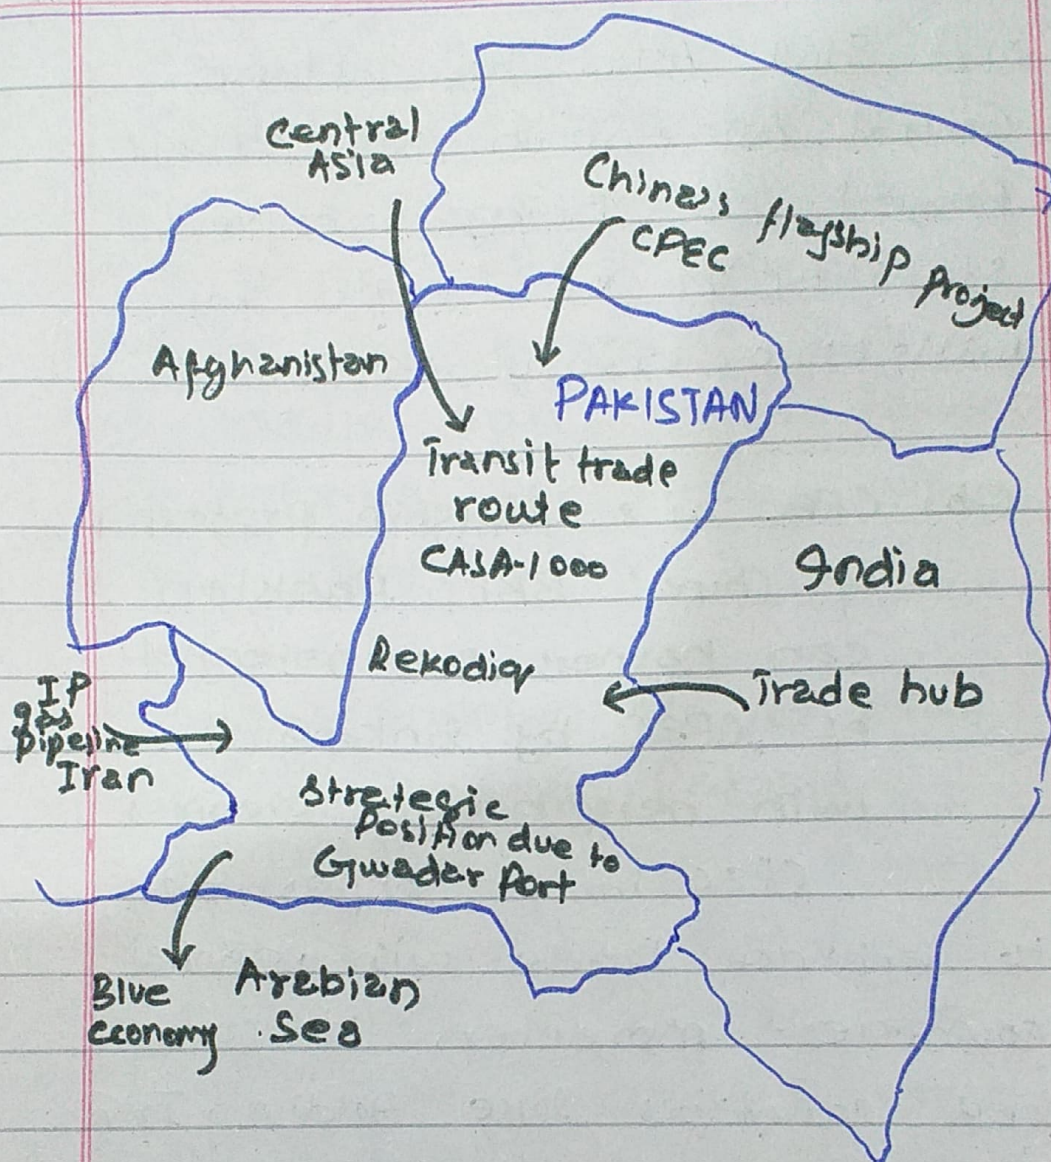 Central
Asia
China's flagship project
CPEC
Afghanistan
PAKISTAN
Transit trade
route
CASA-1000
India
Rekodiq
Trade hub
IP
gas
pipeline
Iran
Strategic
Position due to
Gwadar Port
Blue
economy
Arabian
Sea